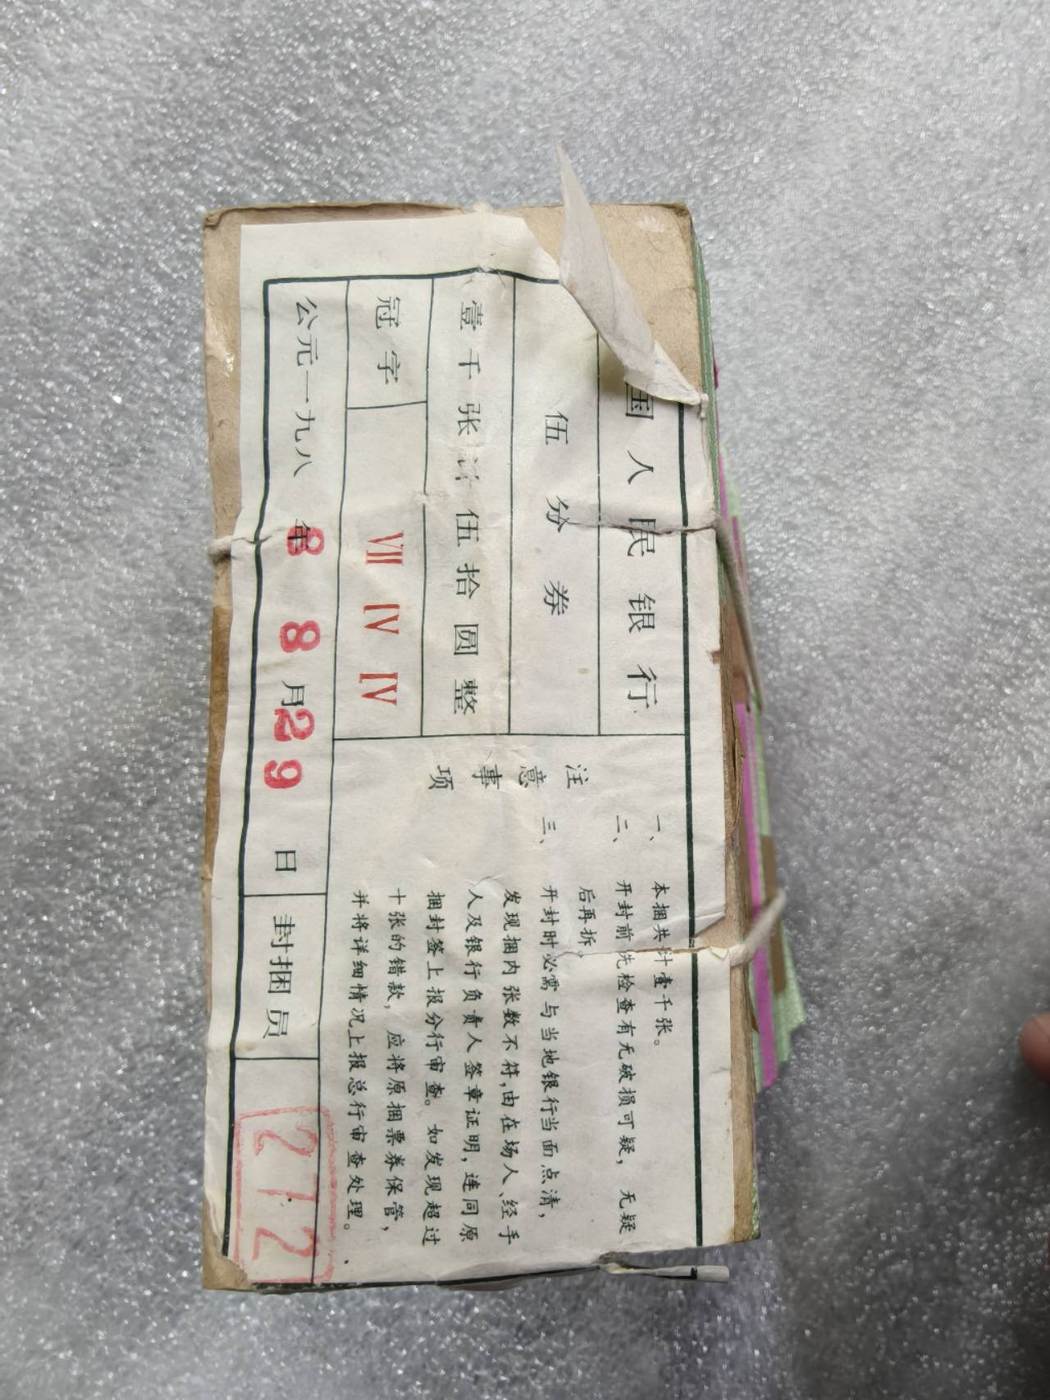 国人民银行
伍分券
壹千张计伍拾圆整
冠字 VII IV IV
公元一九八8年8月29日
封捆员 212
注意事项
一、本捆共计壹千张。
二、开封前先检查有无破损可疑，无疑
后再拆。
三、开封时必需与当地银行当面点清，
发现捆内张数不符，由在场人、经手
人及银行负责人签章证明，连同原
捆封签上报分行审查。如发现超过
十张的错款，应将原捆票券保管，
并将详细情况上报总行审查处理。